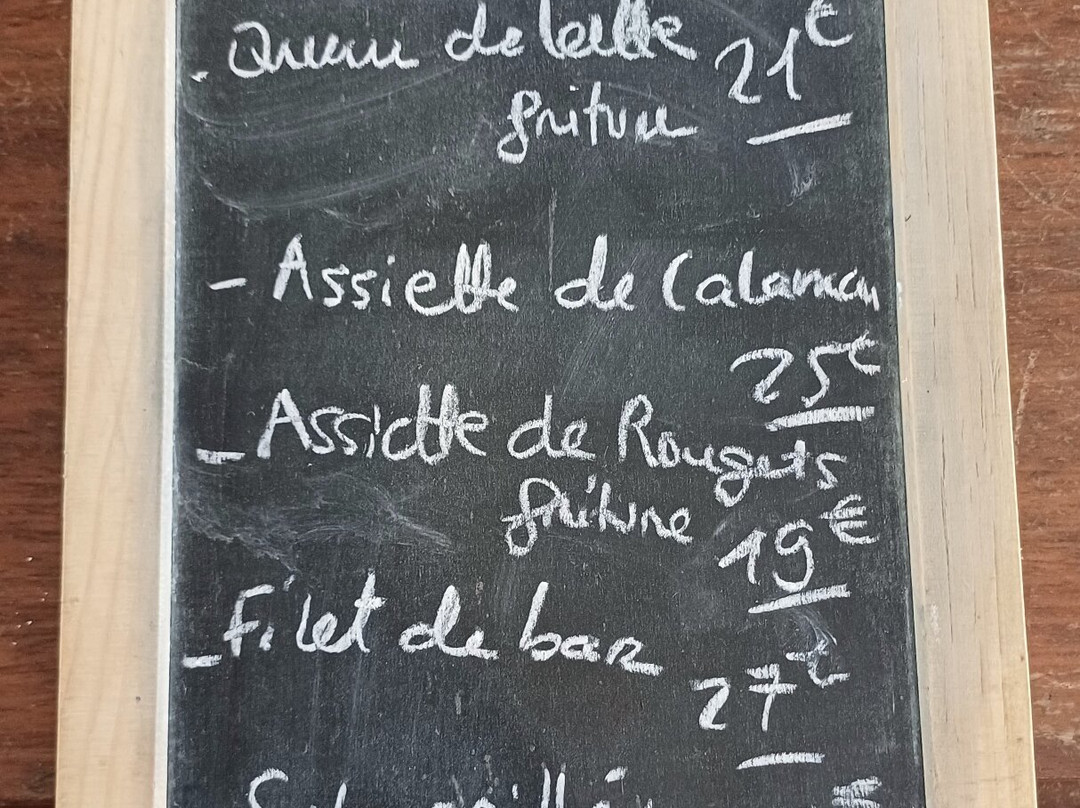 . Queue de lotte 21€
friture
- Assiette de Calamar
25€
- Assiette de Rougets
friture 19€
- Filet de bar
27€